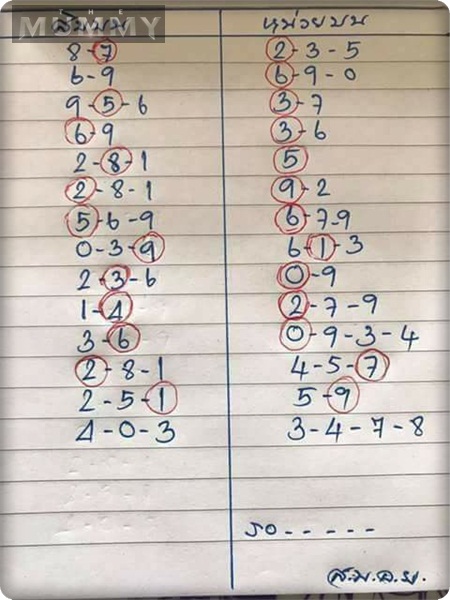 THE MUMMY
สิบบน หน่วยบน
8-7 2-3-5
6-9 6-9-0
9-5-6 3-7
6-9 3-6
2-8-1 5
2-8-1 9-2
5-6-9 6-7-9
0-3-9 6-1-3
2-3-6 0-9
1-4 2-7-9
3-6 0-9-3-4
2-8-1 4-5-7
2-5-1 5-9
4-0-3 3-4-7-8
รอ-----
ส.ม.อ.ย.